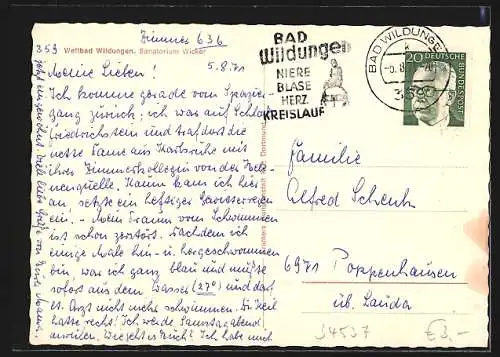 Zimmer 636
359 Weltbad Wildungen. Sanatorium Wicker
5.8.71
Meine Lieben!
Ich komme gerade vom Spazier-
gang zurück; ich war auf Schloß
Friedrichstein und traf dort die
nette Dame aus Karlsruhe mit
ihrer Zimmerkollegin von der Hele-
nenquelle. Kaum kam ich hier
an, setzte ein heftiger Gewitterregen
ein. - Mein Traum vom Schwimmen
ist schon zerstört. Nachdem ich
einige Male hin- u. hergeschwommen
bin, war ich ganz blau und mußte
sofort aus dem Wasser (27°) und darf
lt. Arzt nicht mehr schwimmen. Di Keil
hatte recht! Ich werde Samstagabend
anrufen. Wie geht es Euch? Ich habe mich
BAD
Wildungen
NIERE
BLASE
HERZ
KREISLAUF
BAD WILDUNGEN
359
20 DEUTSCHE BUNDESPOST
Familie
Alfred Schenk
6971 Poppenhausen
üb. Lauda
34537
€3,-